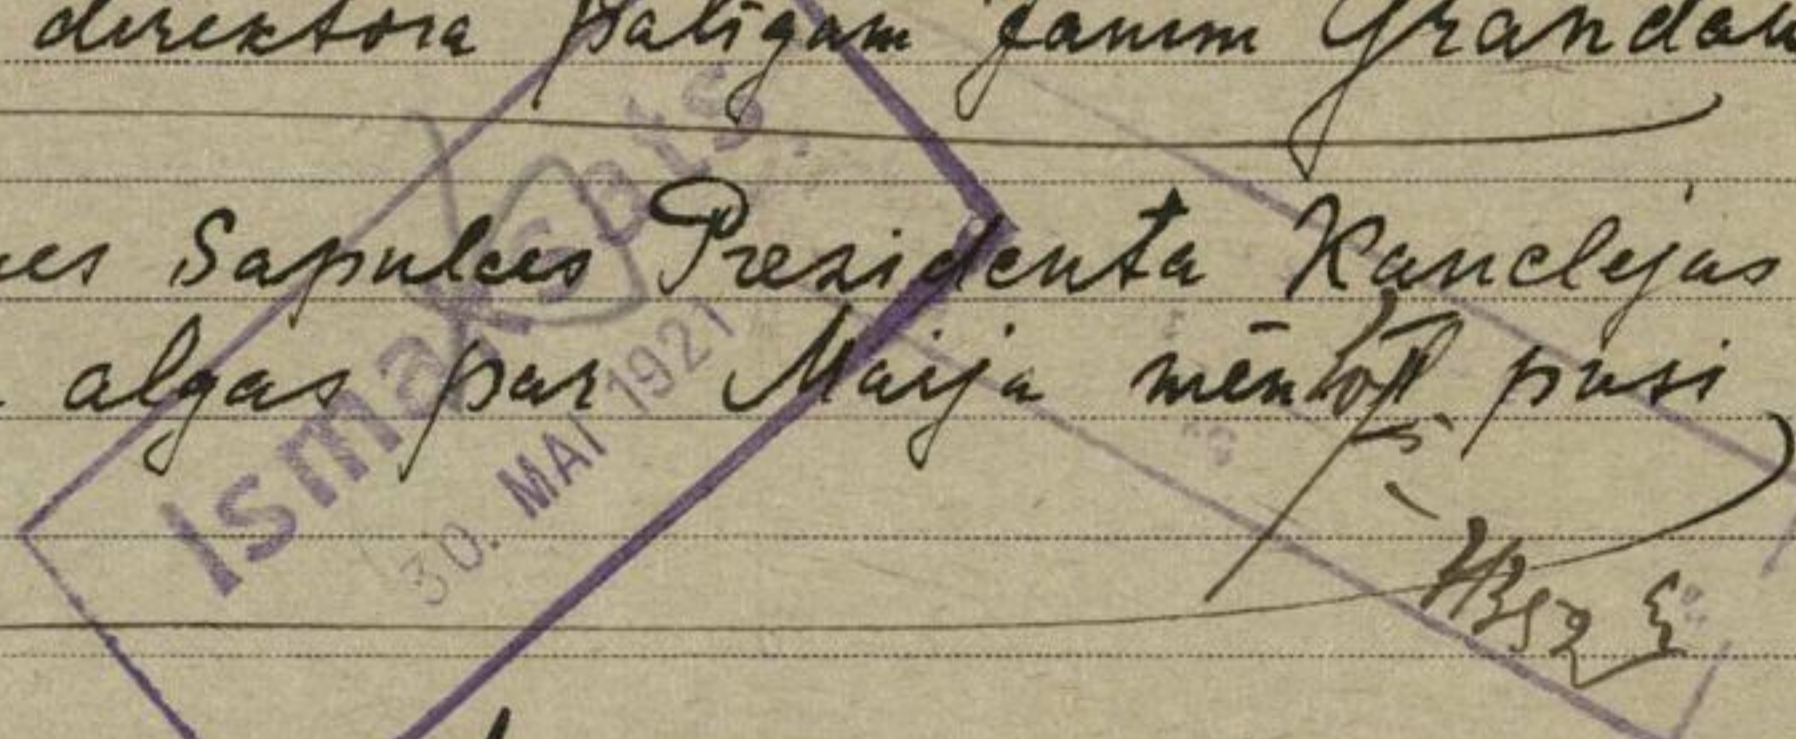 direktora palīgam Jānim Grandau
Sapulces Presidenta Kanclejas
algas par Maija mēn pusi
Ismaksāts.
30. MAI 1921